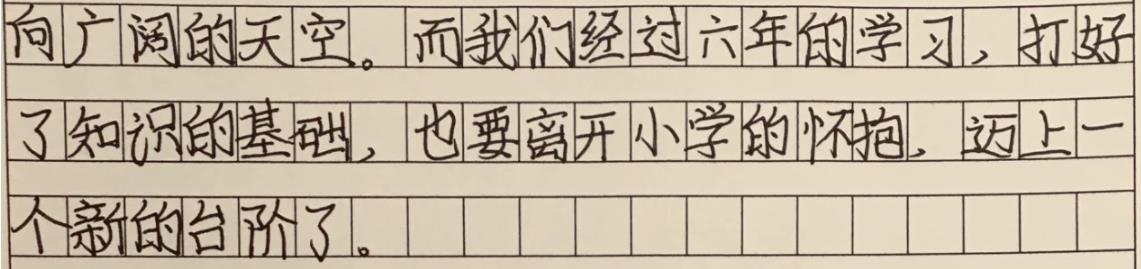 向广阔的天空。而我们经过六年的学习，打好
了知识的基础，也要离开小学的怀抱，迈上一
个新的台阶了。